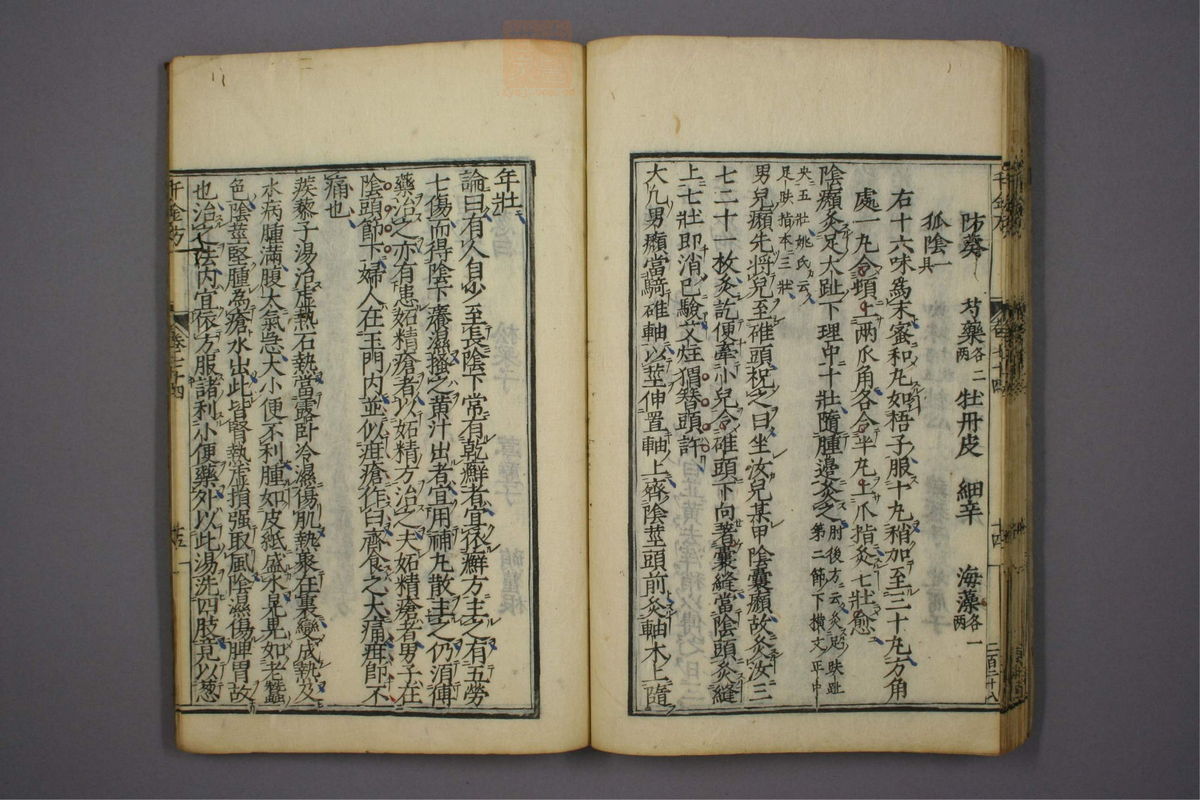 防葵 芍藥各二兩 牡丹皮 細辛 海藻各一兩
狐陰一具
右十六味爲末蜜和丸如梧子服十丸稍加至三十丸方角
處一丸令頓上兩爪角各令半丸上爪指灸七壯愈
陰㿗灸足大趾下理中十壯隨腫邊灸之肘後方云灸足趾
第二節下橫文正中
央五壯姚氏云
足趾本三壯
男兒㿗先將兒至碓頭祝之曰坐汝兒某甲陰囊㿗故灸汝三
七二十一枚灸訖便牽小兒令碓頭下向著囊縫當陰頭灸縫
上七壯即消已驗艾炷猬簪頭許
大凡男㿗當騎碓軸以莖伸置軸上齊陰莖頭前灸軸木上隨
千金方 卷二十四 十四
年壯
論曰有人自少至長陰下常有乾癬者宜依癬方主之有五勞
七傷而得陰下癢濕搔之黃汁出者宜用補丸散主之仍須傅
藥治之亦有患妬精瘡者以妬精方治之夫妬精瘡者男子在
陰頭節下婦人在玉門内並似疳瘡作臼齊食之大痛疳即不
痛也
蒺藜子湯治虚熱石熱當露臥冷濕傷肌熱聚在裏變成熱及
水病腫滿腹大氣急大小便不利腫如皮紙盛水晃晃如老蠶
色陰莖堅腫為瘡水出此皆腎熱虚損强取風陰濕傷脾胃故
也治之法内宜依方服諸利小便藥外以此湯洗四肢竟以葱
千金方 卷二十四 十五